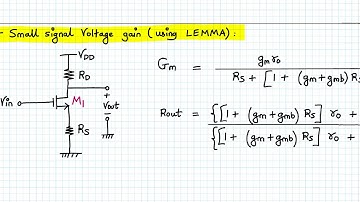 - Small signal Voltage gain (using LEMMA):
VDD
RD
Vin
M1
+
Vout
-
RS
Gm = gm ro
RS + [1 + (gm+gmb) RS
Rout = {[1 + (gm+gmb) RS] ro +
{[1 + (gm+gmb) RS] ro +